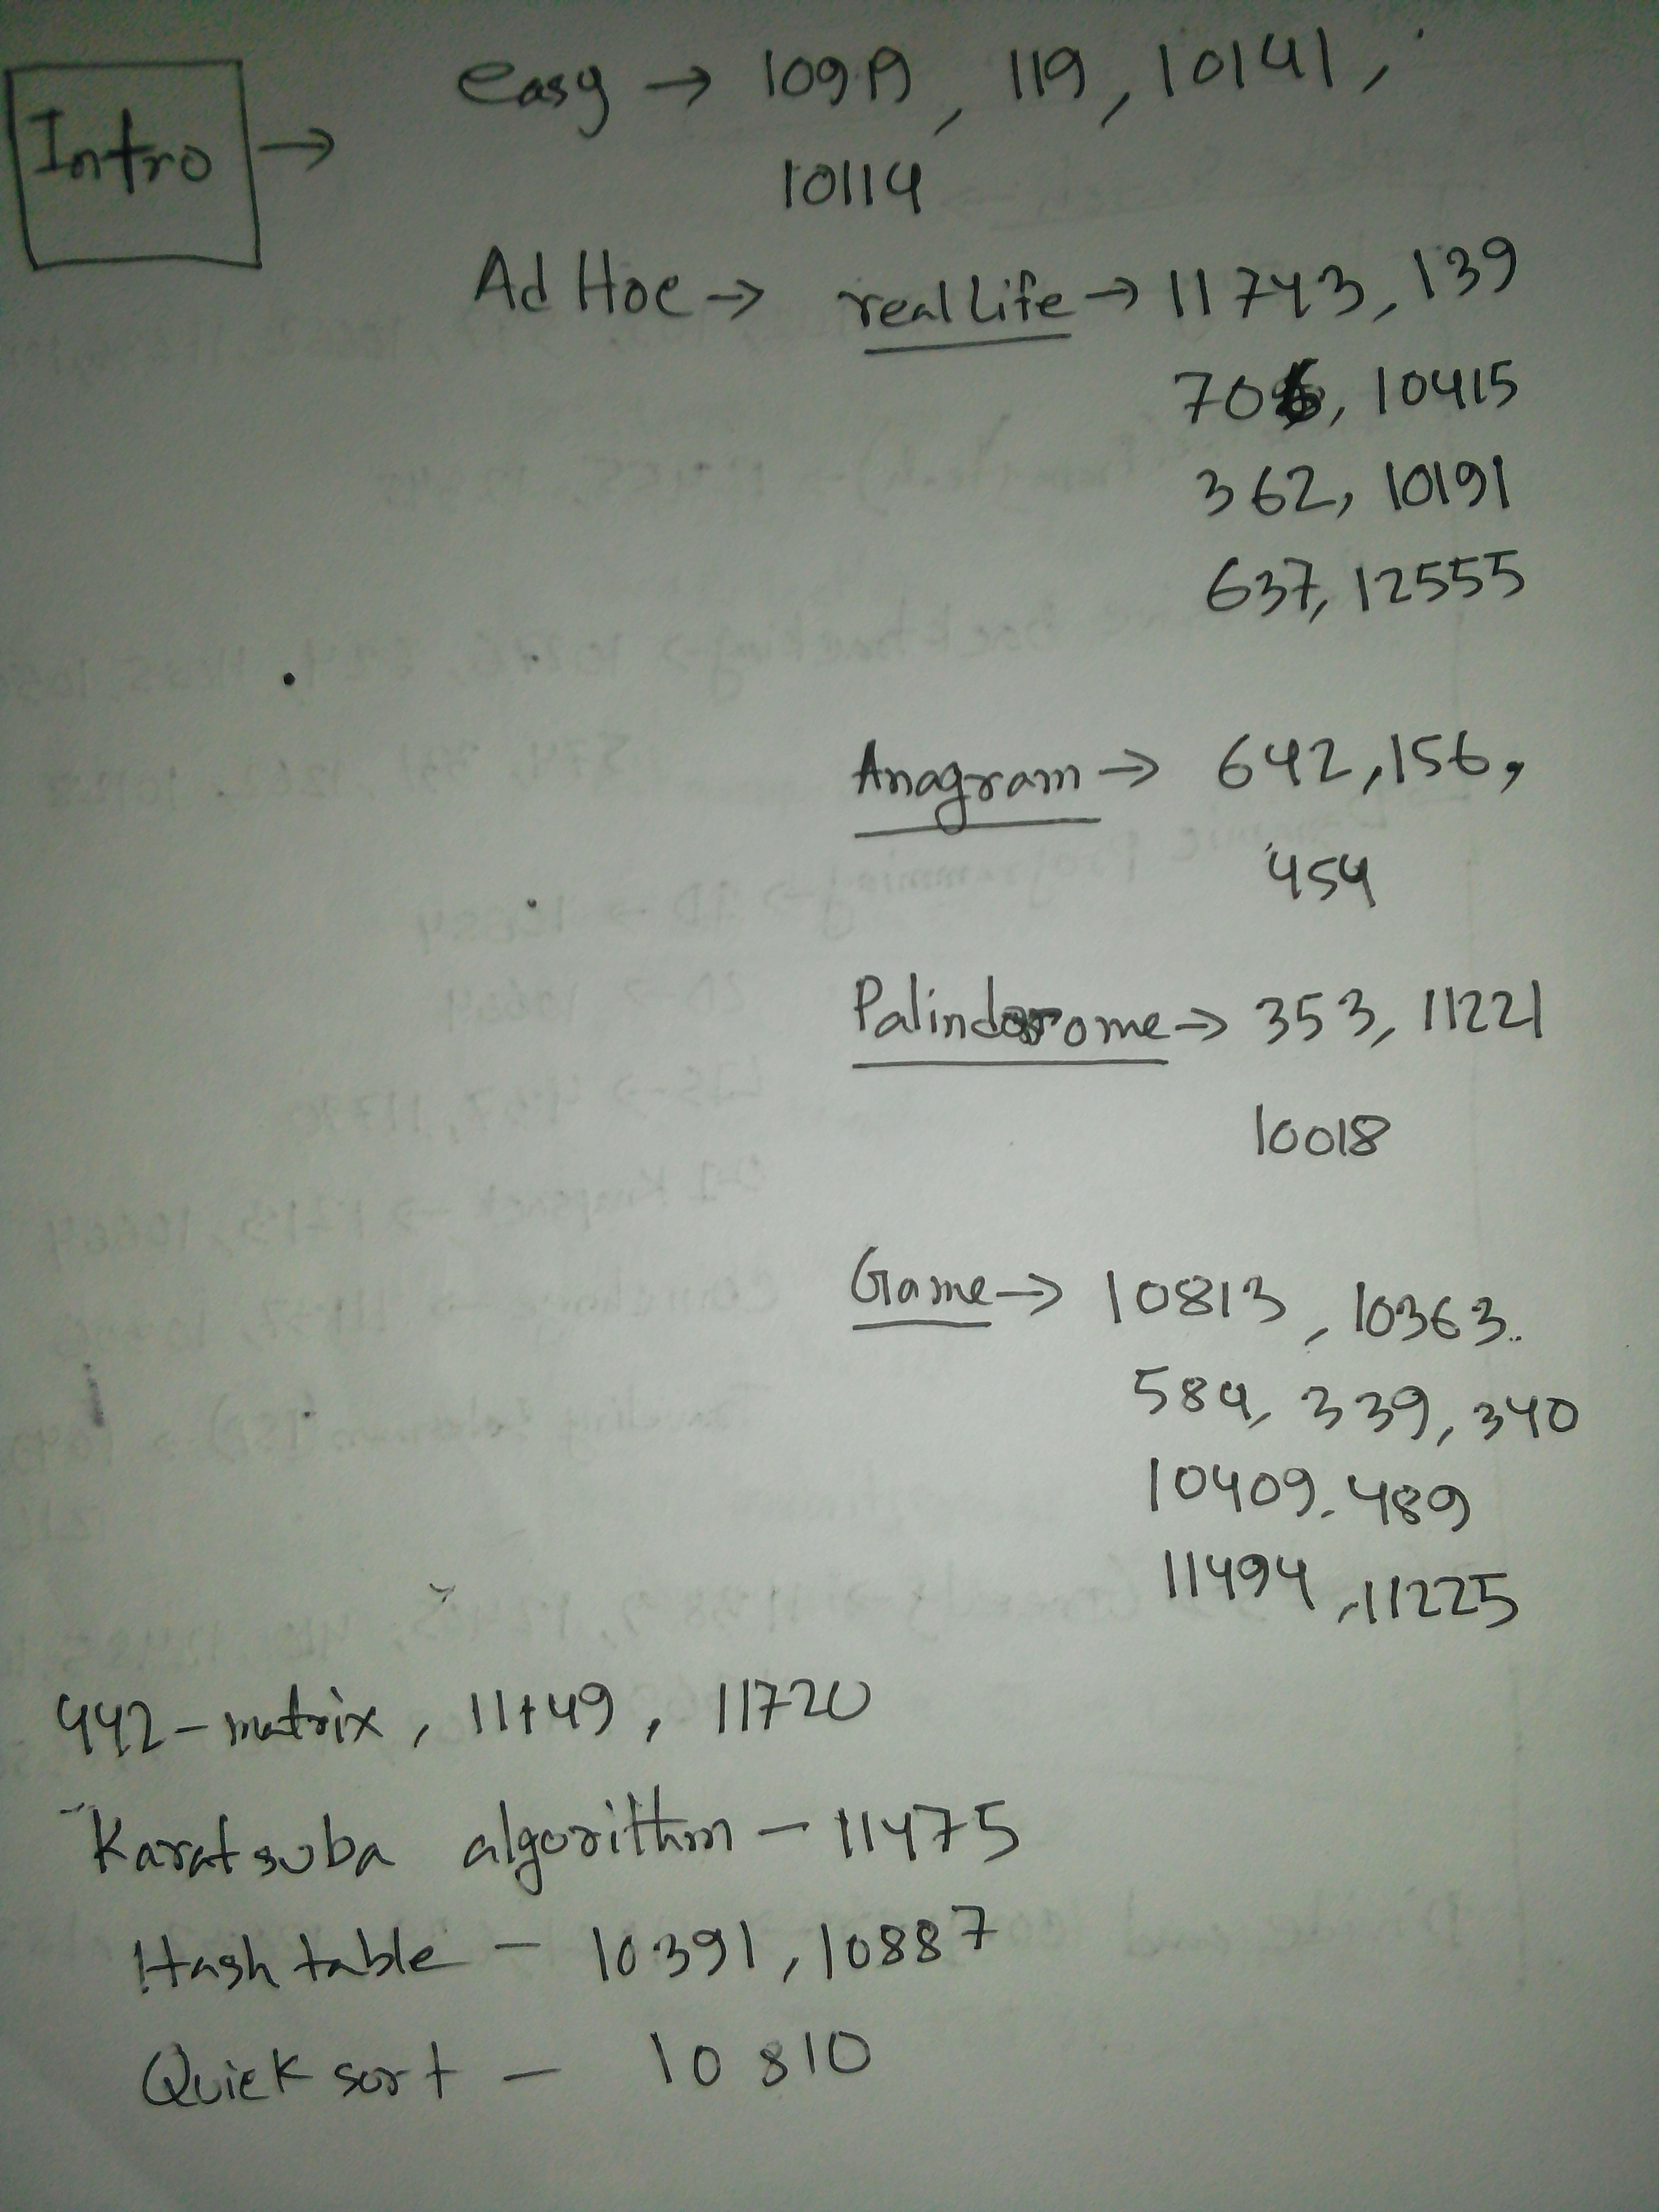 Intro →
easy → 10919, 119, 10141,
10114
Ad Hoc → real life → 11743, 139
706, 10415
362, 10191
637, 12555
Anagram → 642, 156,
454
Palindorome → 353, 11221
10018
Game → 10813, 10363
584, 339, 340
10409, 489
11494, 11225
442 - matrix, 11149, 11720
Karatsuba algorithm - 11475
Hash table - 10391, 10887
Quick sort - 10810